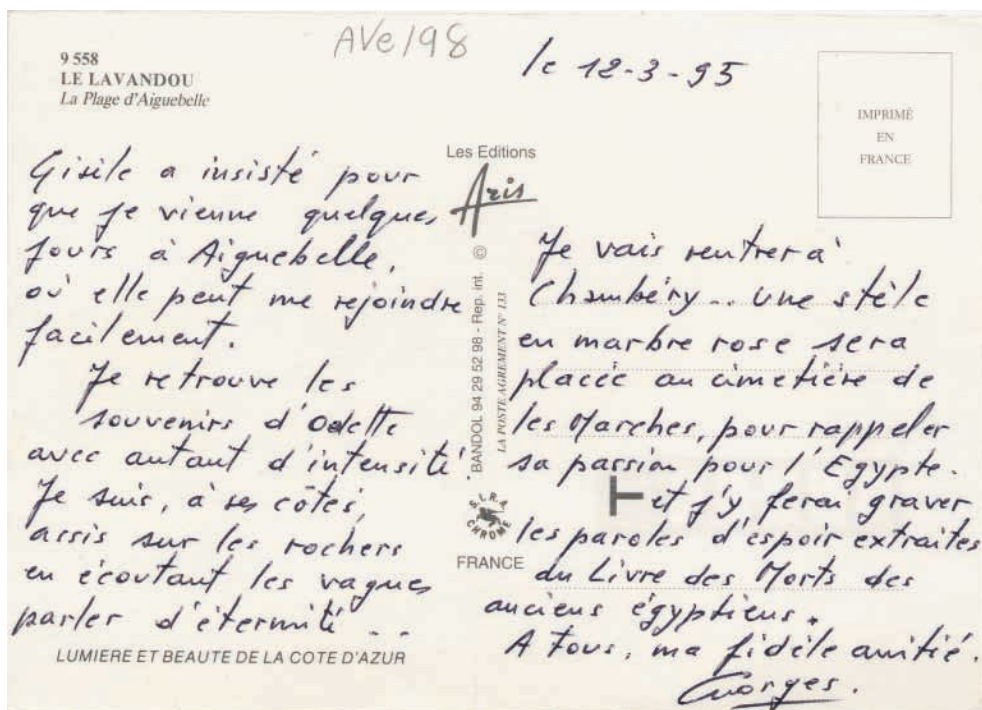 AVe/98
9 558
LE LAVANDOU
La Plage d'Aiguebelle
le 12-3-95
IMPRIMÉ
EN
FRANCE
Gisèle a insisté pour
que je vienne quelques
jours à Aiguebelle,
où elle peut me rejoindre
facilement.
Je retrouve les
souvenirs d'Odette
avec autant d'intensité
Je suis, à ses côtés,
assis sur les rochers
en écoutant les vagues
parler d'éternité...
LUMIERE ET BEAUTE DE LA COTE D'AZUR
Les Editions
Aris
BANDOL 94 29 52 98 - Rep. int. ©
LA POSTE AGREMENT N° 133
S.I.R.A
CHROME
FRANCE
Je vais rentrer à
Chambéry... une stèle
en marbre rose sera
placée au cimetière de
les Marches, pour rappeler
sa passion pour l'Egypte.
et j'y ferai graver
les paroles d'espoir extraites
du Livre des Morts des
anciens égyptiens.
A tous, ma fidèle amitié.
Georges.